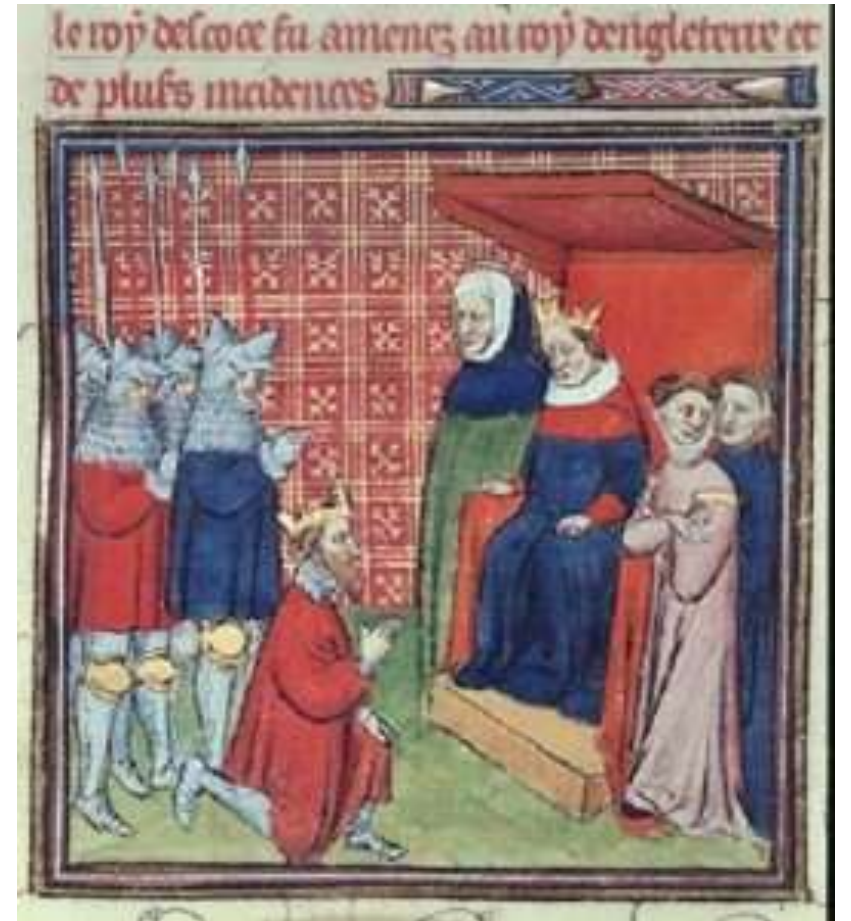 le roy descoce fu amenez au roy dengleterre et
de plusƷ incidences.